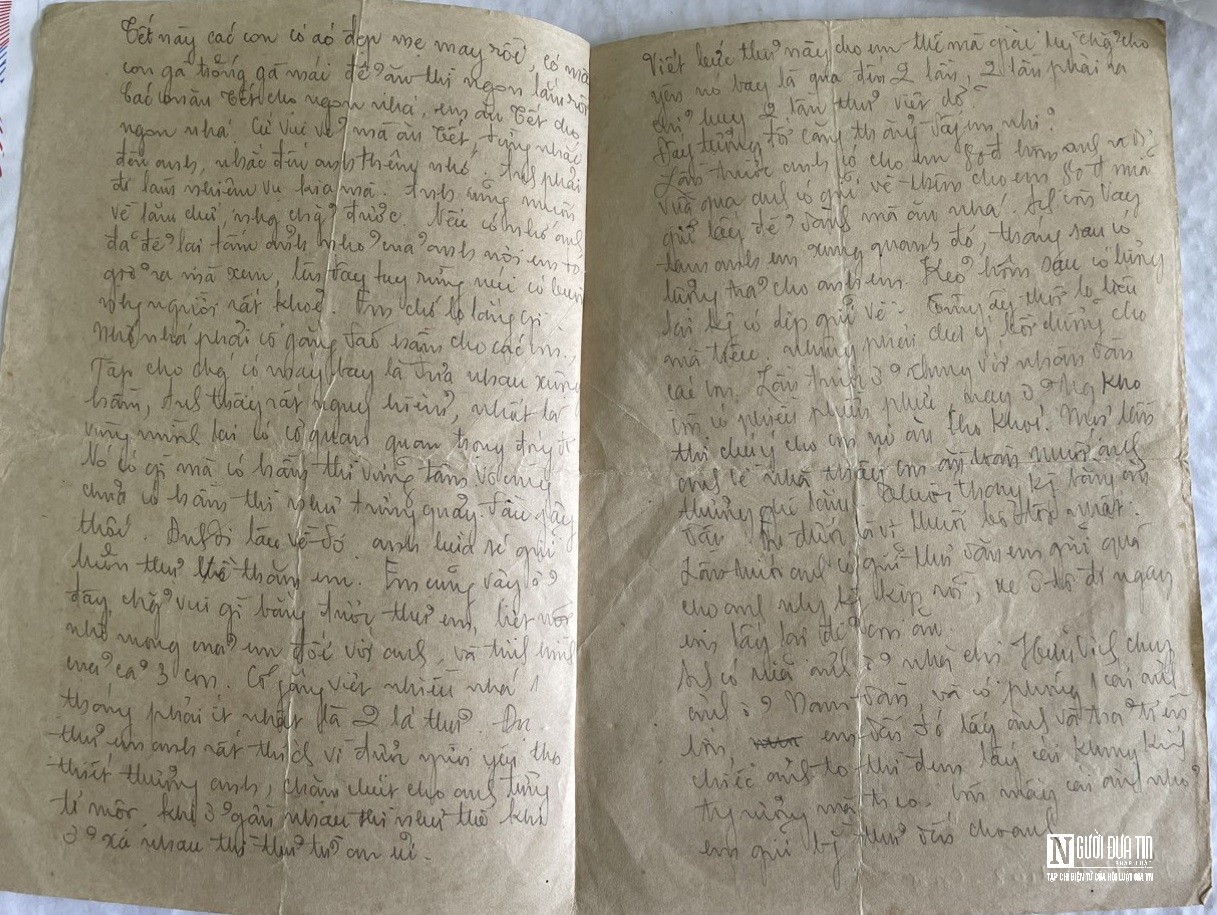 Tết này các con có áo đẹp mẹ may rồi, có mà
con gà trống gà mái để ăn thì ngon lắm rồi
các món tết cho ngon nhá, em ăn Tết cho
ngon nhá. Cứ vui vẻ mà ăn Tết, đừng nhắc
đến anh, nhắc đến anh thêm nhớ. Anh phải
đi làm nhiệm vụ kia mà. Anh cũng muốn
về lắm chứ, nhg chẳng được. Nếu có nhớ anh
đã để lại tấm ảnh nhỏ mà anh nói em đó
giở ra mà xem, lên đây tuy rừng núi có buồn
nhg người rất khoẻ. Em chớ lo lắng gì.
Nhớ nhá phải cố gắng đào hầm cho các con.
Tập cho chg có máy bay là đưa nhau xuống
hầm, Anh thấy rất nguy hiểm, nhất là
vùng mình lại có cơ quan quan trọng đóng ở
Nó có gì mà có hầm thì vững tâm vô cùng
chưa có hầm thì như trứng quẩy đầu gậy
thôi. Anh đi lâu về đó. anh hứa sẽ gửi
luôn thư về thăm em. Em cũng vậy ở
đây chẳng vui gì bằng được thư em, biết nỗi
nhớ mong của em đối với anh, và tình hình
của cả 3 con. Cố gắng viết nhiều nhá 1
tháng phải ít nhất là 2 lá thư. Đọc
thư em anh rất thích vì được người yêu tha
thiết thương anh, chăm chút cho anh từng
tí một khi ở gần nhau thì như thế khi
ở xa nhau thì thư từ an ủi.
Viết bức thư này cho em thế mà giặc Mỹ chẳng cho
yên nó bay là qua đến 2 lần, 2 lần phải ra
chỉ huy 2 lần thư viết dở.
Đấy tưởng tớ căng thẳng đấy em nhỉ?
Lần trước anh có cho em 50đ hôm anh ra đi
vừa qua anh có gửi về thêm cho em 50đ nữa
giữ lấy để dành mà ăn nhá. Anh còn vay
thêm anh em xung quanh đó, tháng sau có
lương trả cho anh em. Kẻo hôm sau có lương
lại kg có dịp gửi về. Từng ấy thôi lo liệu
mà tiêu. Nhưng phải chú ý bồi dưỡng cho
các con. Lần trước ở chung với nhân dân
còn có phiền phức, nay ở Ng kho
thì chú ý cho con nó ăn cho khoẻ. Mọi lần
anh về nhà thấy con ăn
thương quá
Lần trước anh có gửi thư dặn em gửi quà
cho anh nhg kg kịp nữa, xe ô tô đi ngay
em lấy lại để con ăn.
Anh có mấy ảnh ở nhà chú chụp
anh ở Nam Đàn, và có phóng 1 cái ảnh
lớn em đến đó lấy ảnh và trả tiền
chiếc ảnh to thì đem lấy cái khung kính
mà treo. Còn mấy cái ảnh nhỏ
em gửi thư vào cho anh
NGƯỜI ĐƯA TIN
PHÁP LUẬT
TẠP CHÍ ĐIỆN TỬ CỦA HỘI LUẬT GIA VN